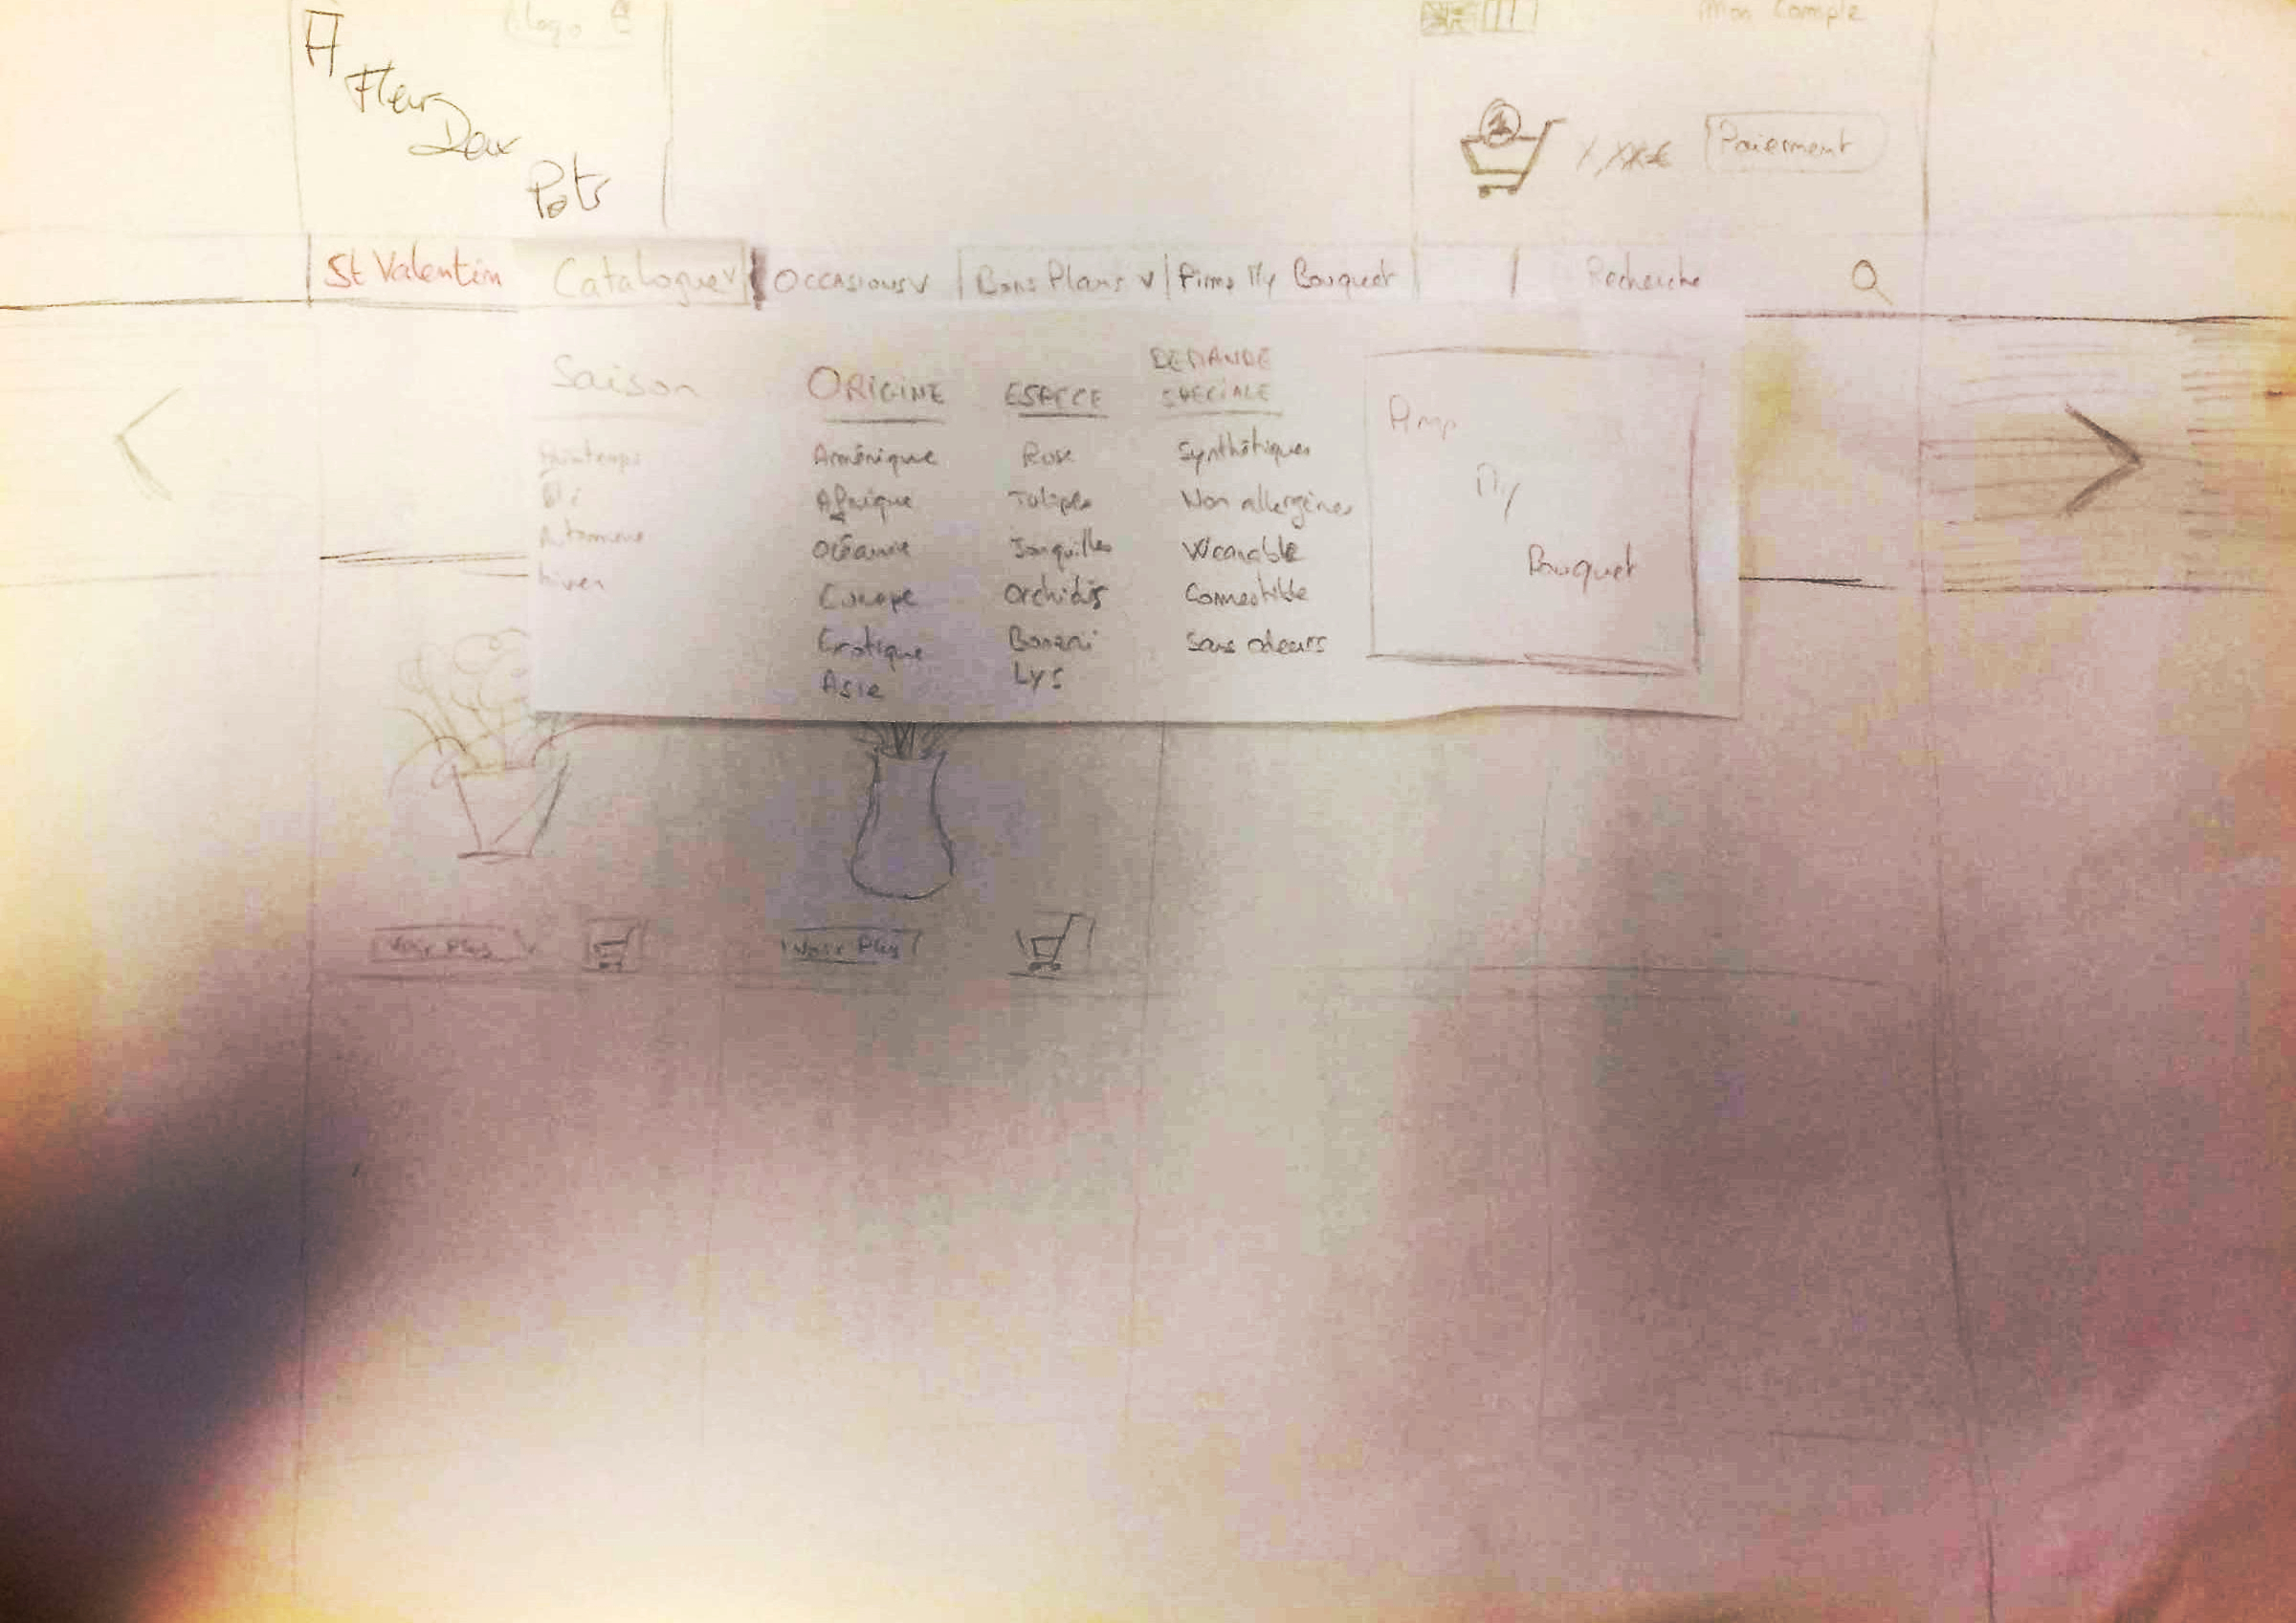 Logo
Mon Compte
A
Fleur
Deux
Pots
X,XX€ Paiement
St Valentin Catalogue OCCASIONS Bons Plans Pimp My Bouquet Recherche
Saison
Printemps
Eté
Automne
hiver
ORIGINE
Amérique
Afrique
Océanie
Europe
Exotique
Asie
ESPECE
Rose
Tulipes
Jonquilles
Orchidés
Bonzai
Lys
DEMANDE
SPECIALE
Synthétiques
Non allergènes
Wearable
Comestible
Sans odeurs
Pimp
My
Bouquet
Voir Plus
Voir Plus